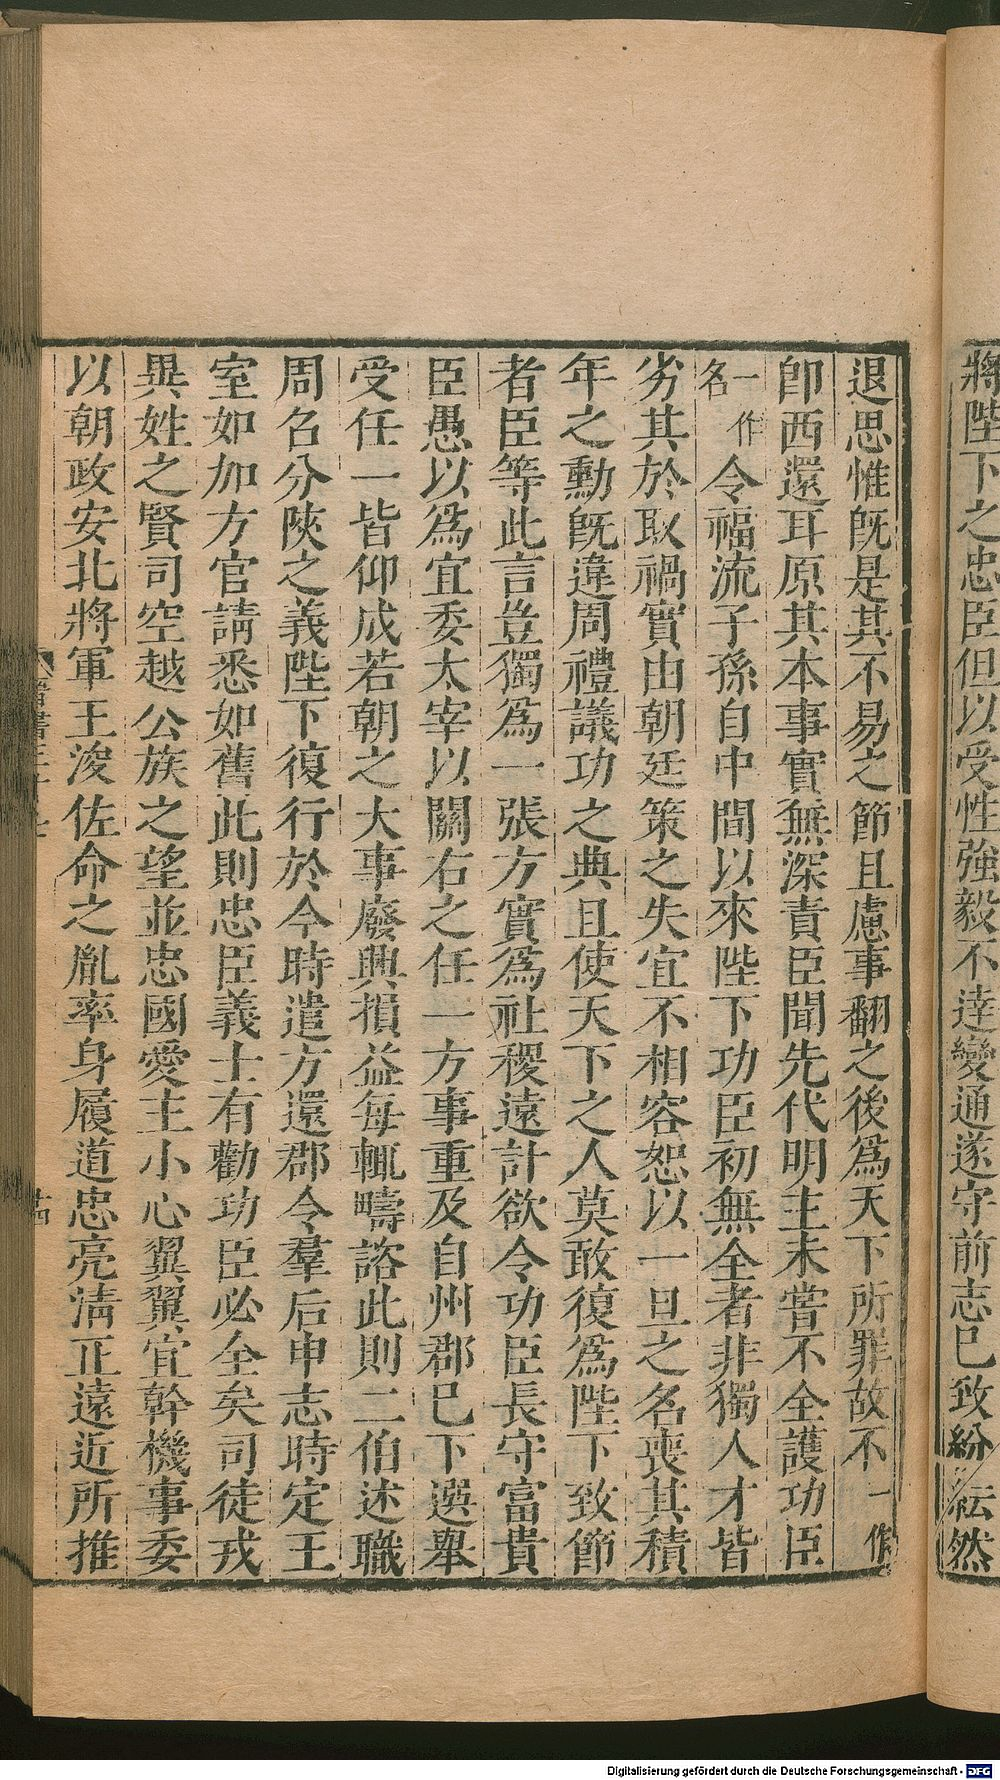 將陛下之忠臣但以受性強毅不達變通遂守前志已致紛紜然
退思惟旣是其不易之節且慮事翻之後爲天下所罪故不一作
卽西還耳原其本事實無深責臣聞先代明主未嘗不全護功臣
一作名令福流子孫自中間以來陛下功臣初無全者非獨人才皆
劣其於取禍實由朝廷策之失宜不相容恕以一旦之名喪其積
年之勳旣違周禮議功之典且使天下之人莫敢復爲陛下致節
者臣等此言豈獨爲一張方實爲社稷遠計欲令功臣長守富貴
臣愚以爲宜委太宰以關右之任一方事重及自州郡已下選舉
受任一皆仰成若朝之大事廢興損益每輒疇諮此則二伯述職
周召分陜之義陛下復行於今時遣方還郡令羣后申志時定王
室如加方官請悉如舊此則忠臣義士有勸功臣必全矣司徒戎
異姓之賢司空越公族之望並忠國愛主小心翼翼宜幹機事委
以朝政安北將軍王浚佐命之胤率身履道忠亮淸正遠近所推
十四
Digitalisierung gefördert durch die Deutsche Forschungsgemeinschaft - DFG